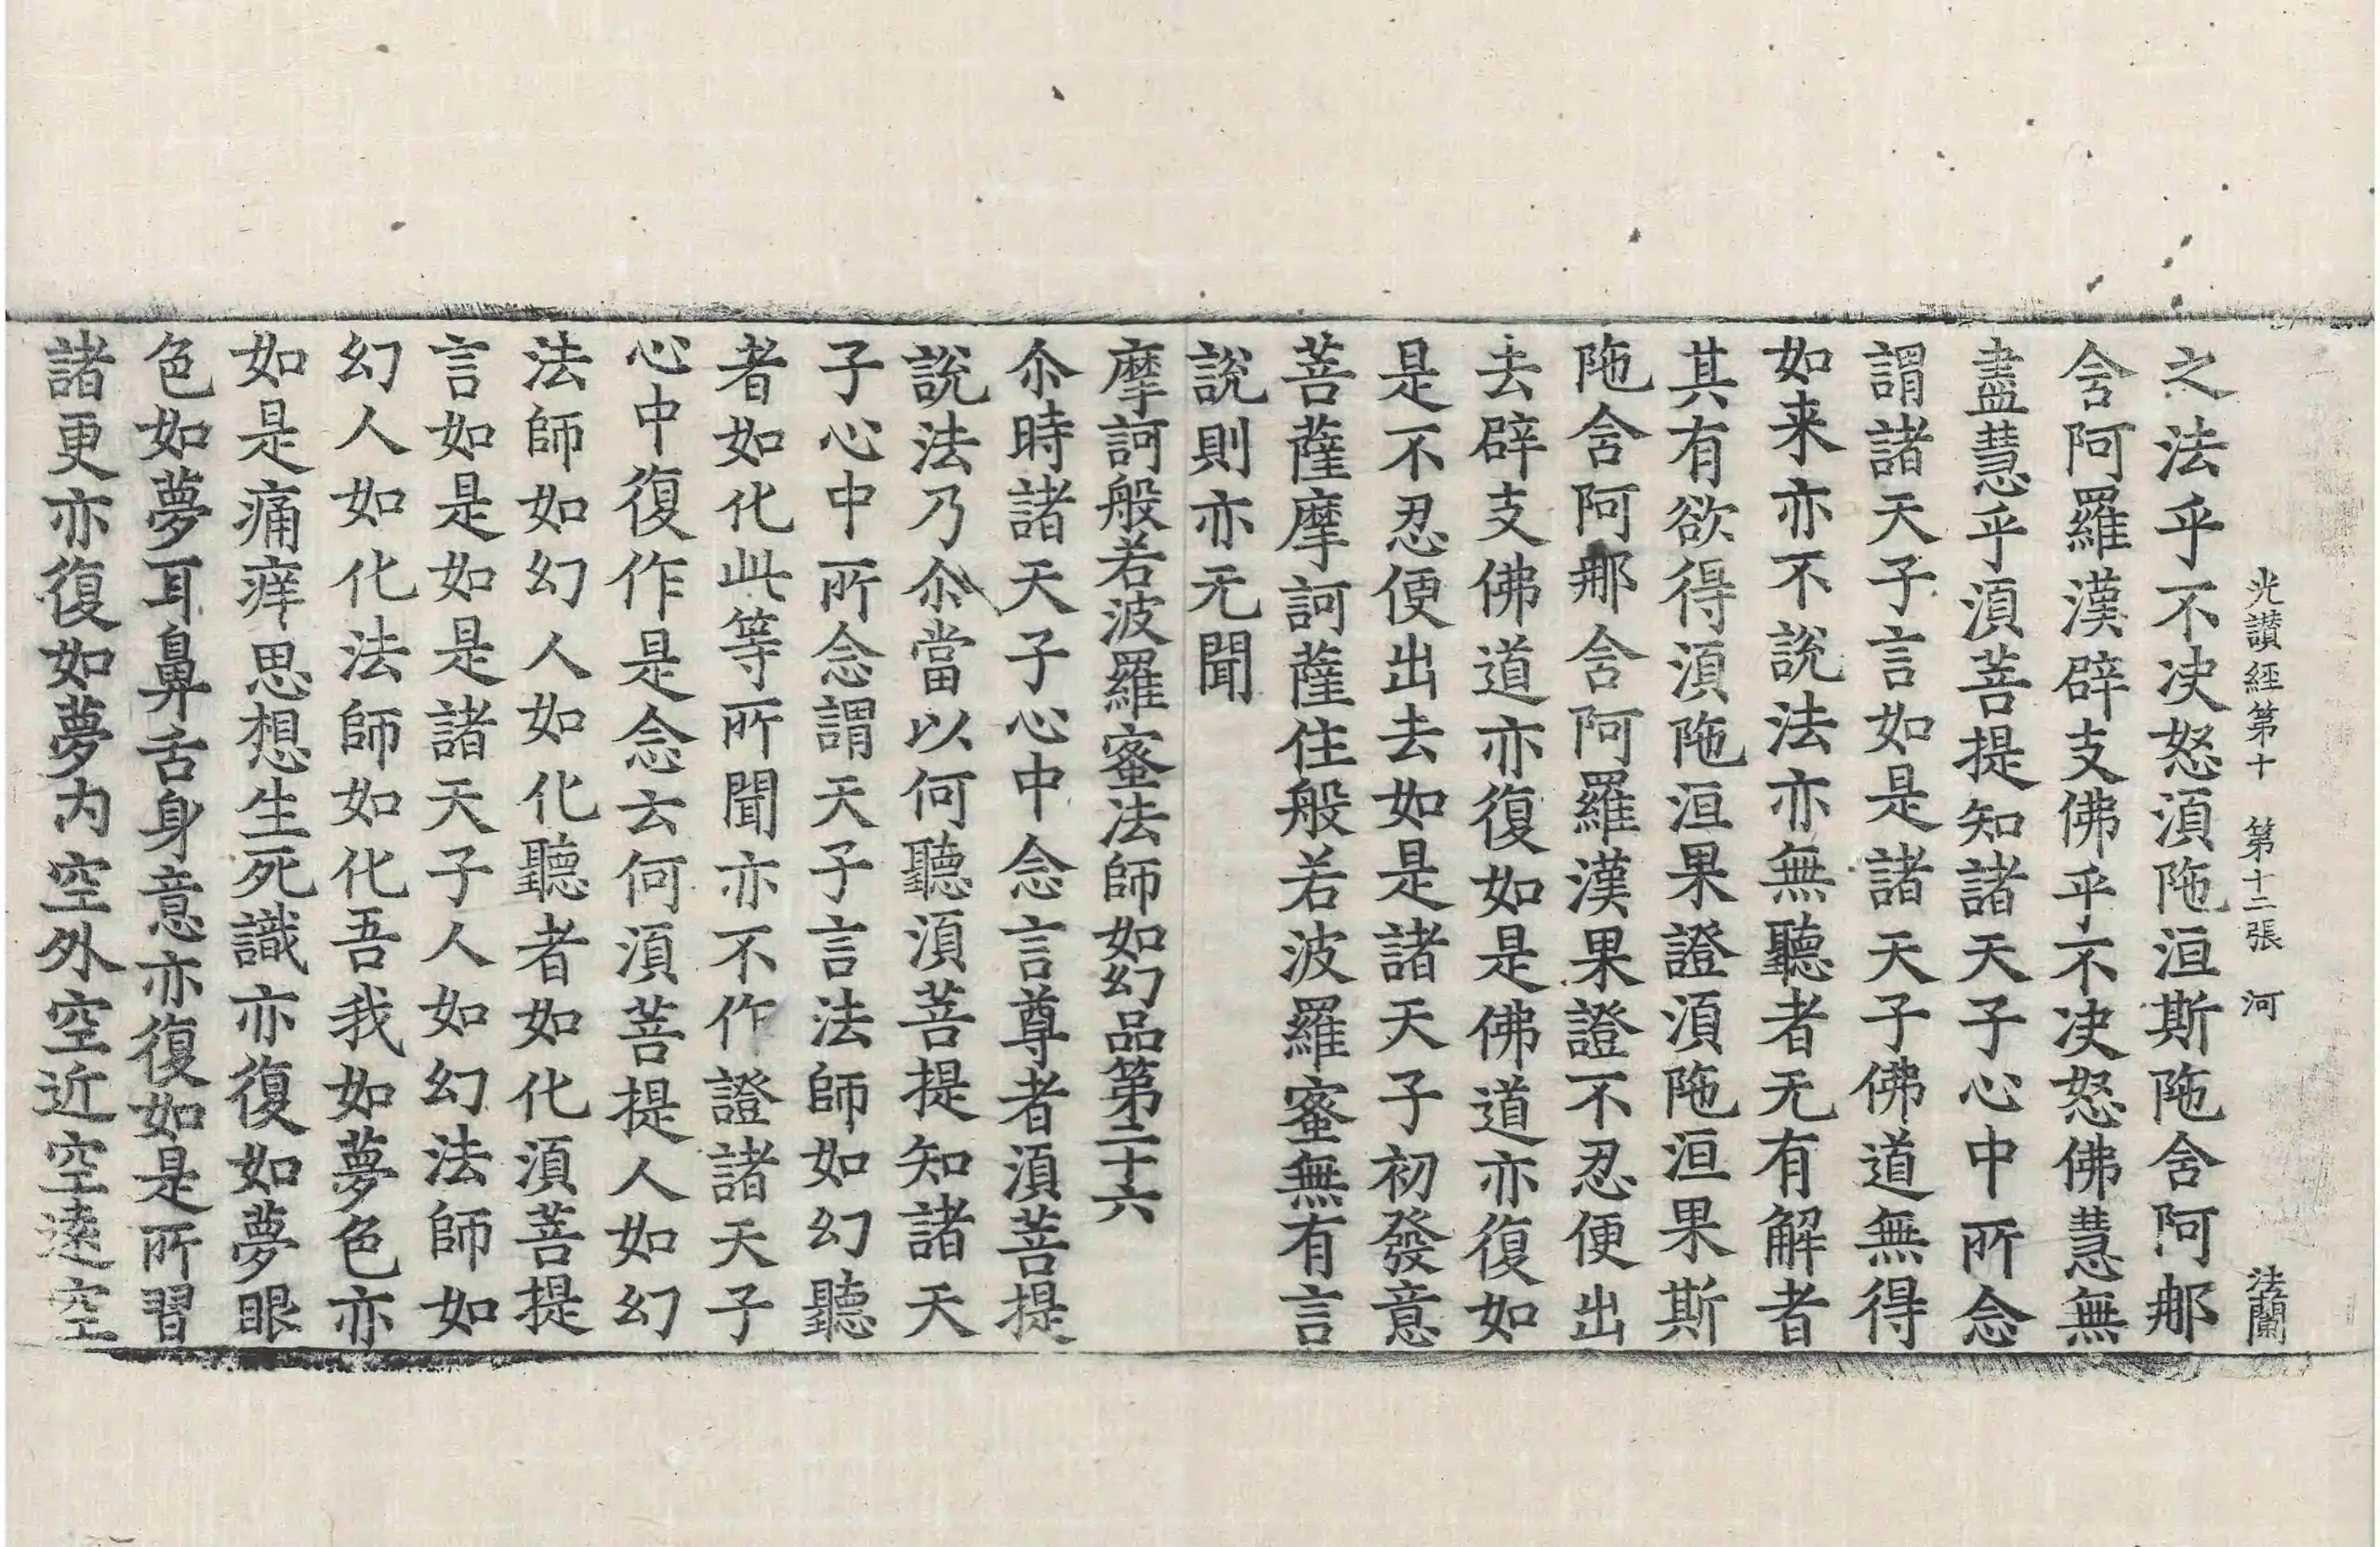 光讃經第十　第十二張　河　法蘭
之法乎不决怒湏陁洹斯陁含阿那
含阿羅漢辟支佛乎不决怒佛慧無
盡慧乎湏菩提知諸天子心中所念
謂諸天子言如是諸天子佛道無得
如来亦不說法亦無聽者无有解者
其有欲得湏陁洹果證湏陁洹果斯
陁含阿那含阿羅漢果證不忍便出
去辟支佛道亦復如是佛道亦復如
是不忍便出去如是諸天子初發意
菩薩摩訶薩住般若波羅蜜無有言
說則亦无聞
摩訶般若波羅蜜法師如幻品第二十六
尒時諸天子心中念言尊者湏菩提
說法乃尒當以何聽湏菩提知諸天
子心中所念謂天子言法師如幻聽
者如化此等所聞亦不作證諸天子
心中復作是念云何湏菩提人如幻
法師如幻人如化聽者如化湏菩提
言如是如是諸天子人如幻法師如
幻人如化法師如化吾我如夢色亦
如是痛痒思想生死識亦復如夢眼
色如夢耳鼻舌身意亦復如是所習
諸更亦復如夢内空外空近空遠空